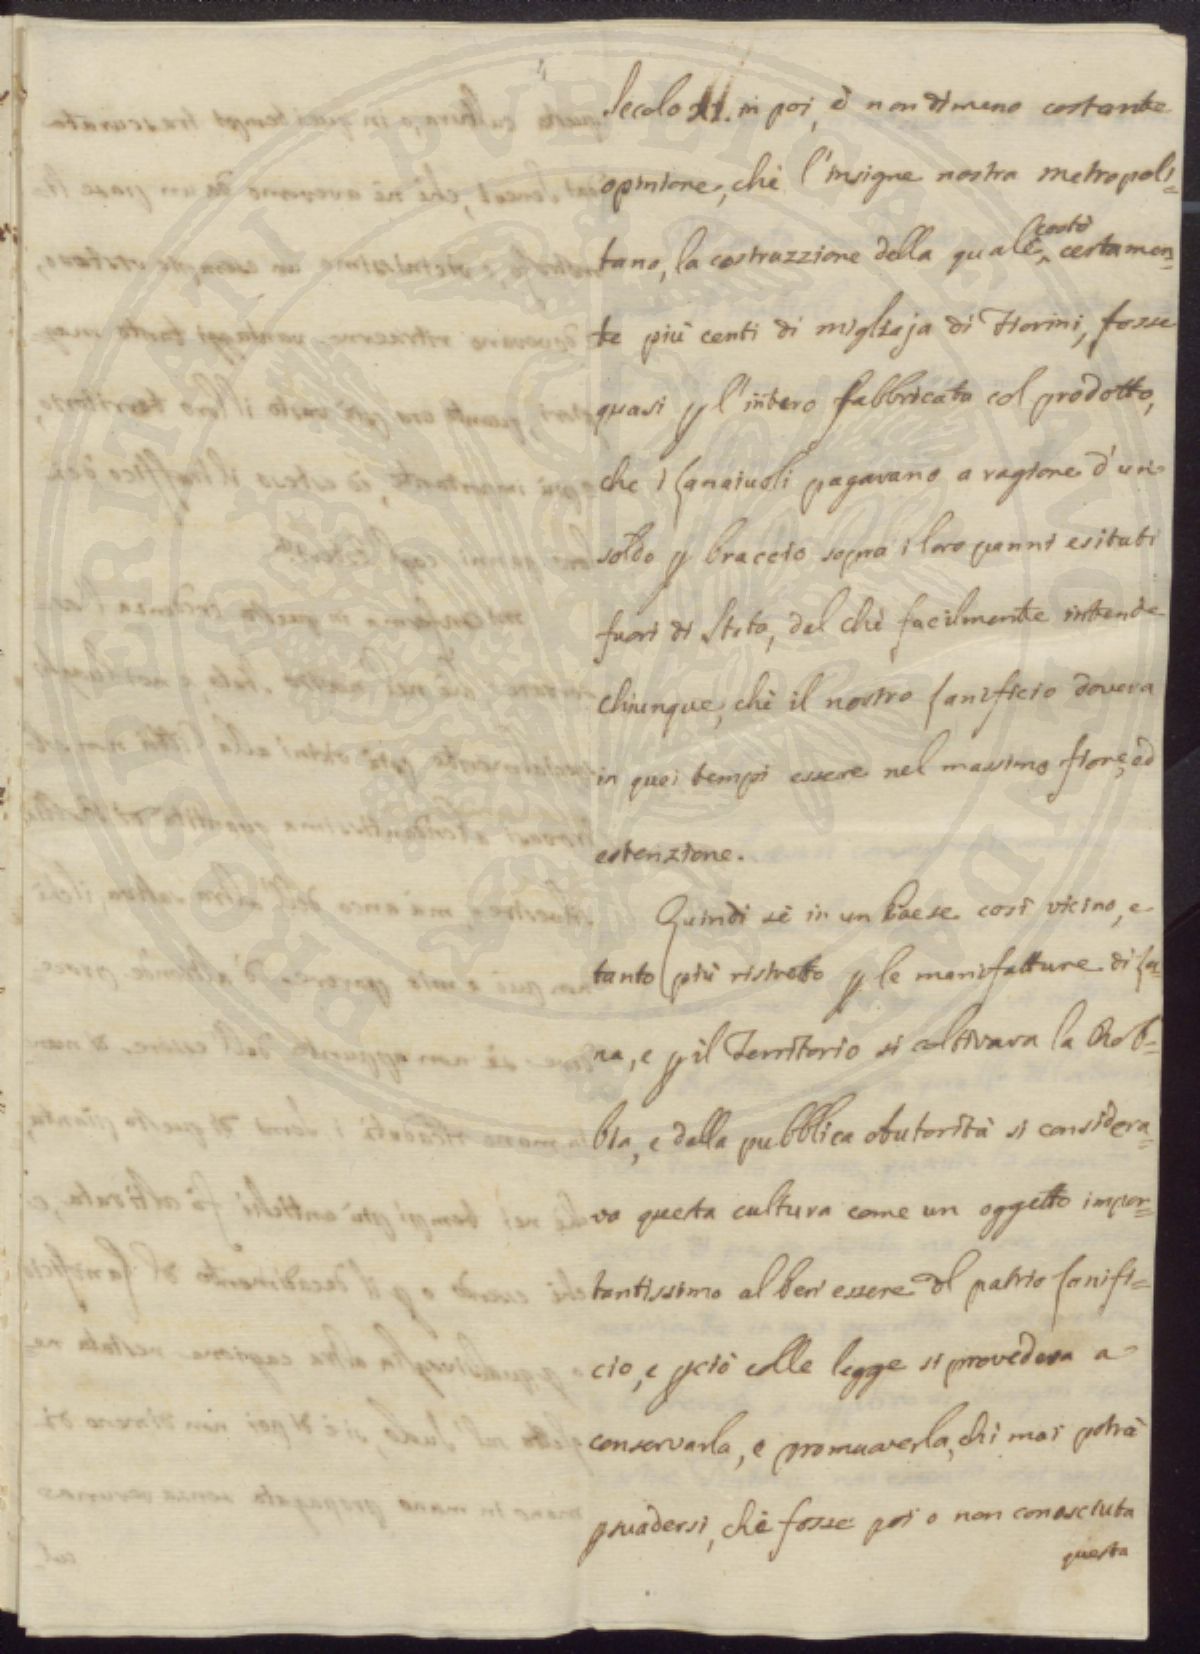 Secolo XI. in poi, è nondimeno costante
opinione, chè l'insigne nostra metropoli=
tano, la costruzzione della quale costò certamen=
te più centi di migliaja di Fiorini, fosse
quasi p l'intero fabbricata col prodotto,
che i Lanaiuoli pagavano a ragione d'un
soldo p braccio sopra i loro panni esitati
fuori di Stato, dal chè facilmente intende
chiunque, chè il nostro Lanificio doveva
in quei tempi essere nel massimo fiore, ed
estenzione.
Quindi sè in un Paese così vicino, e
tanto più ristretto p le manifatture di La=
na, e p il Territorio si coltivava la Rob=
bia, e dalla pubblica Autorità si considera=
va questa cultura come un oggetto impor=
tantissimo al ben'essere del patrio Lanifi=
cio, e pciò colle legge si provedeva a
conservarla, e promuoverla, chi mai potrà
psuadersi, chè fosse poi o non conosciuta
questa
PROSPERITATI PUBLICAE AUGENDAE